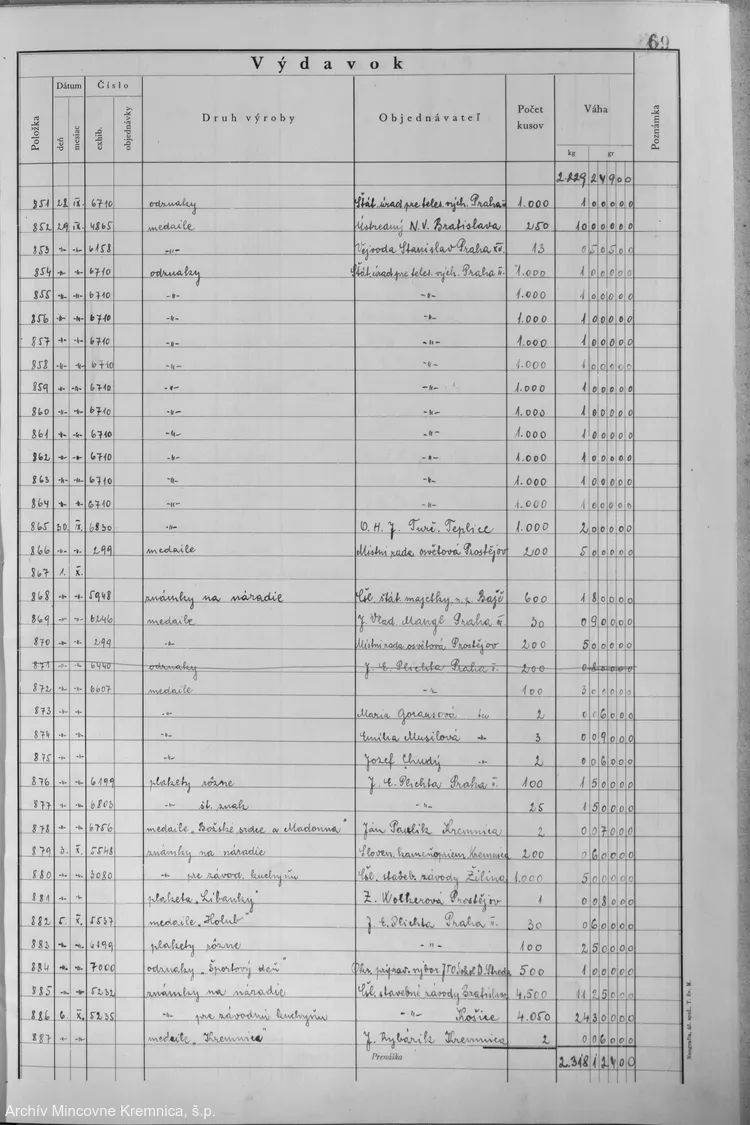 69
Výdavok
Položka Dátum Číslo Druh výroby Objednávateľ Počet kusov Váha Poznámka
deň mesiac exhib. objednávky kg gr
2.229 24900
851 28 IX. 6710 odznaky Štát. úrad pre teles. vých. Praha 1.000 1 00000
852 29 IX. 4865 medaile Ústredný N.V. Bratislava 250 10 00000
853 -"- -"- 6158 -"- Vejvoda Stanislav Praha XV. 13 0 50500
854 -"- -"- 6710 odznaky Štát. úrad pre teles. vých. Praha II. 1.000 1 00000
855 -"- -"- 6710 -"- -"- 1.000 1 00000
856 -"- -"- 6710 -"- -"- 1.000 1 00000
857 -"- -"- 6710 -"- -"- 1.000 1 00000
858 -"- -"- 6710 -"- -"- 1.000 1 00000
859 -"- -"- 6710 -"- -"- 1.000 1 00000
860 -"- -"- 6710 -"- -"- 1.000 1 00000
861 -"- -"- 6710 -"- -"- 1.000 1 00000
862 -"- -"- 6710 -"- -"- 1.000 1 00000
863 -"- -"- 6710 -"- -"- 1.000 1 00000
864 -"- -"- 6710 -"- -"- 1.000 1 00000
865 30. IX. 6830 -"- O.H.J. Turč. Teplice 1.000 2 00000
866 -"- -"- 299 medaile Místní rada osvětová Prostějov 200 5 00000
867 1. X.
868 -"- -"- 5948 známky na náradie Čsl. štát. majetky n. p. Báč 600 1 80000
869 -"- -"- 6246 medaile J. Vlad. Mangl Praha 30 0 90000
870 -"- -"- 299 -"- Místní rada osvětová Prostějov 200 5 00000
871 -"- -"- 6440 odznaky J. E. Plichta Praha I. 200 0 80000
872 -"- -"- 6607 medaile -"- 100 3 00000
873 -"- -"- -"- Maria 2 0 06000
874 -"- -"- -"- Emilia Musilová -"- 3 0 09000
875 -"- -"- -"- Jozef Chudý -"- 2 0 06000
876 -"- -"- 6199 plakety rôzne J. E. Plichta Praha I. 100 1 50000
877 -"- -"- 6803 -"- št. znak -"- 25 1 50000
878 -"- -"- 6756 medaile „Božské srdce a Madonna" Ján Pavlik Kremnica 2 0 07000
879 3. X. 5548 známky na náradie Sloven. kameňopriem. Kremnica 200 0 60000
880 -"- -"- 3080 -"- pre závod. kuchyňu Čsl. staveb. závody Žilina 1.000 5 00000
881 -"- -"- plaketa „Libanky" Z. Wolkerová Prostějov 1 0 08000
882 5. X. 5537 medaile „Holub" J. E. Plichta Praha I. 30 0 60000
883 -"- -"- 6199 plakety rôzne -"- 100 2 50000
884 -"- -"- 7000 odznaky „Športový deň" Okr. príprav. výbor JTO Sokol D. Streda 500 1 00000
885 -"- -"- 5232 známky na náradie Čsl. stavebné závody Bratislava 4.500 11 25000
886 6. X. 5235 -"- pre závodnú kuchyňu -"- Košice 4.050 24 30000
887 -"- -"- medaile „Kremnica" J. Rybárik Kremnica 2 0 06000
Prenáška 2.318 12400
Archív Mincovne Kremnica, š.p.